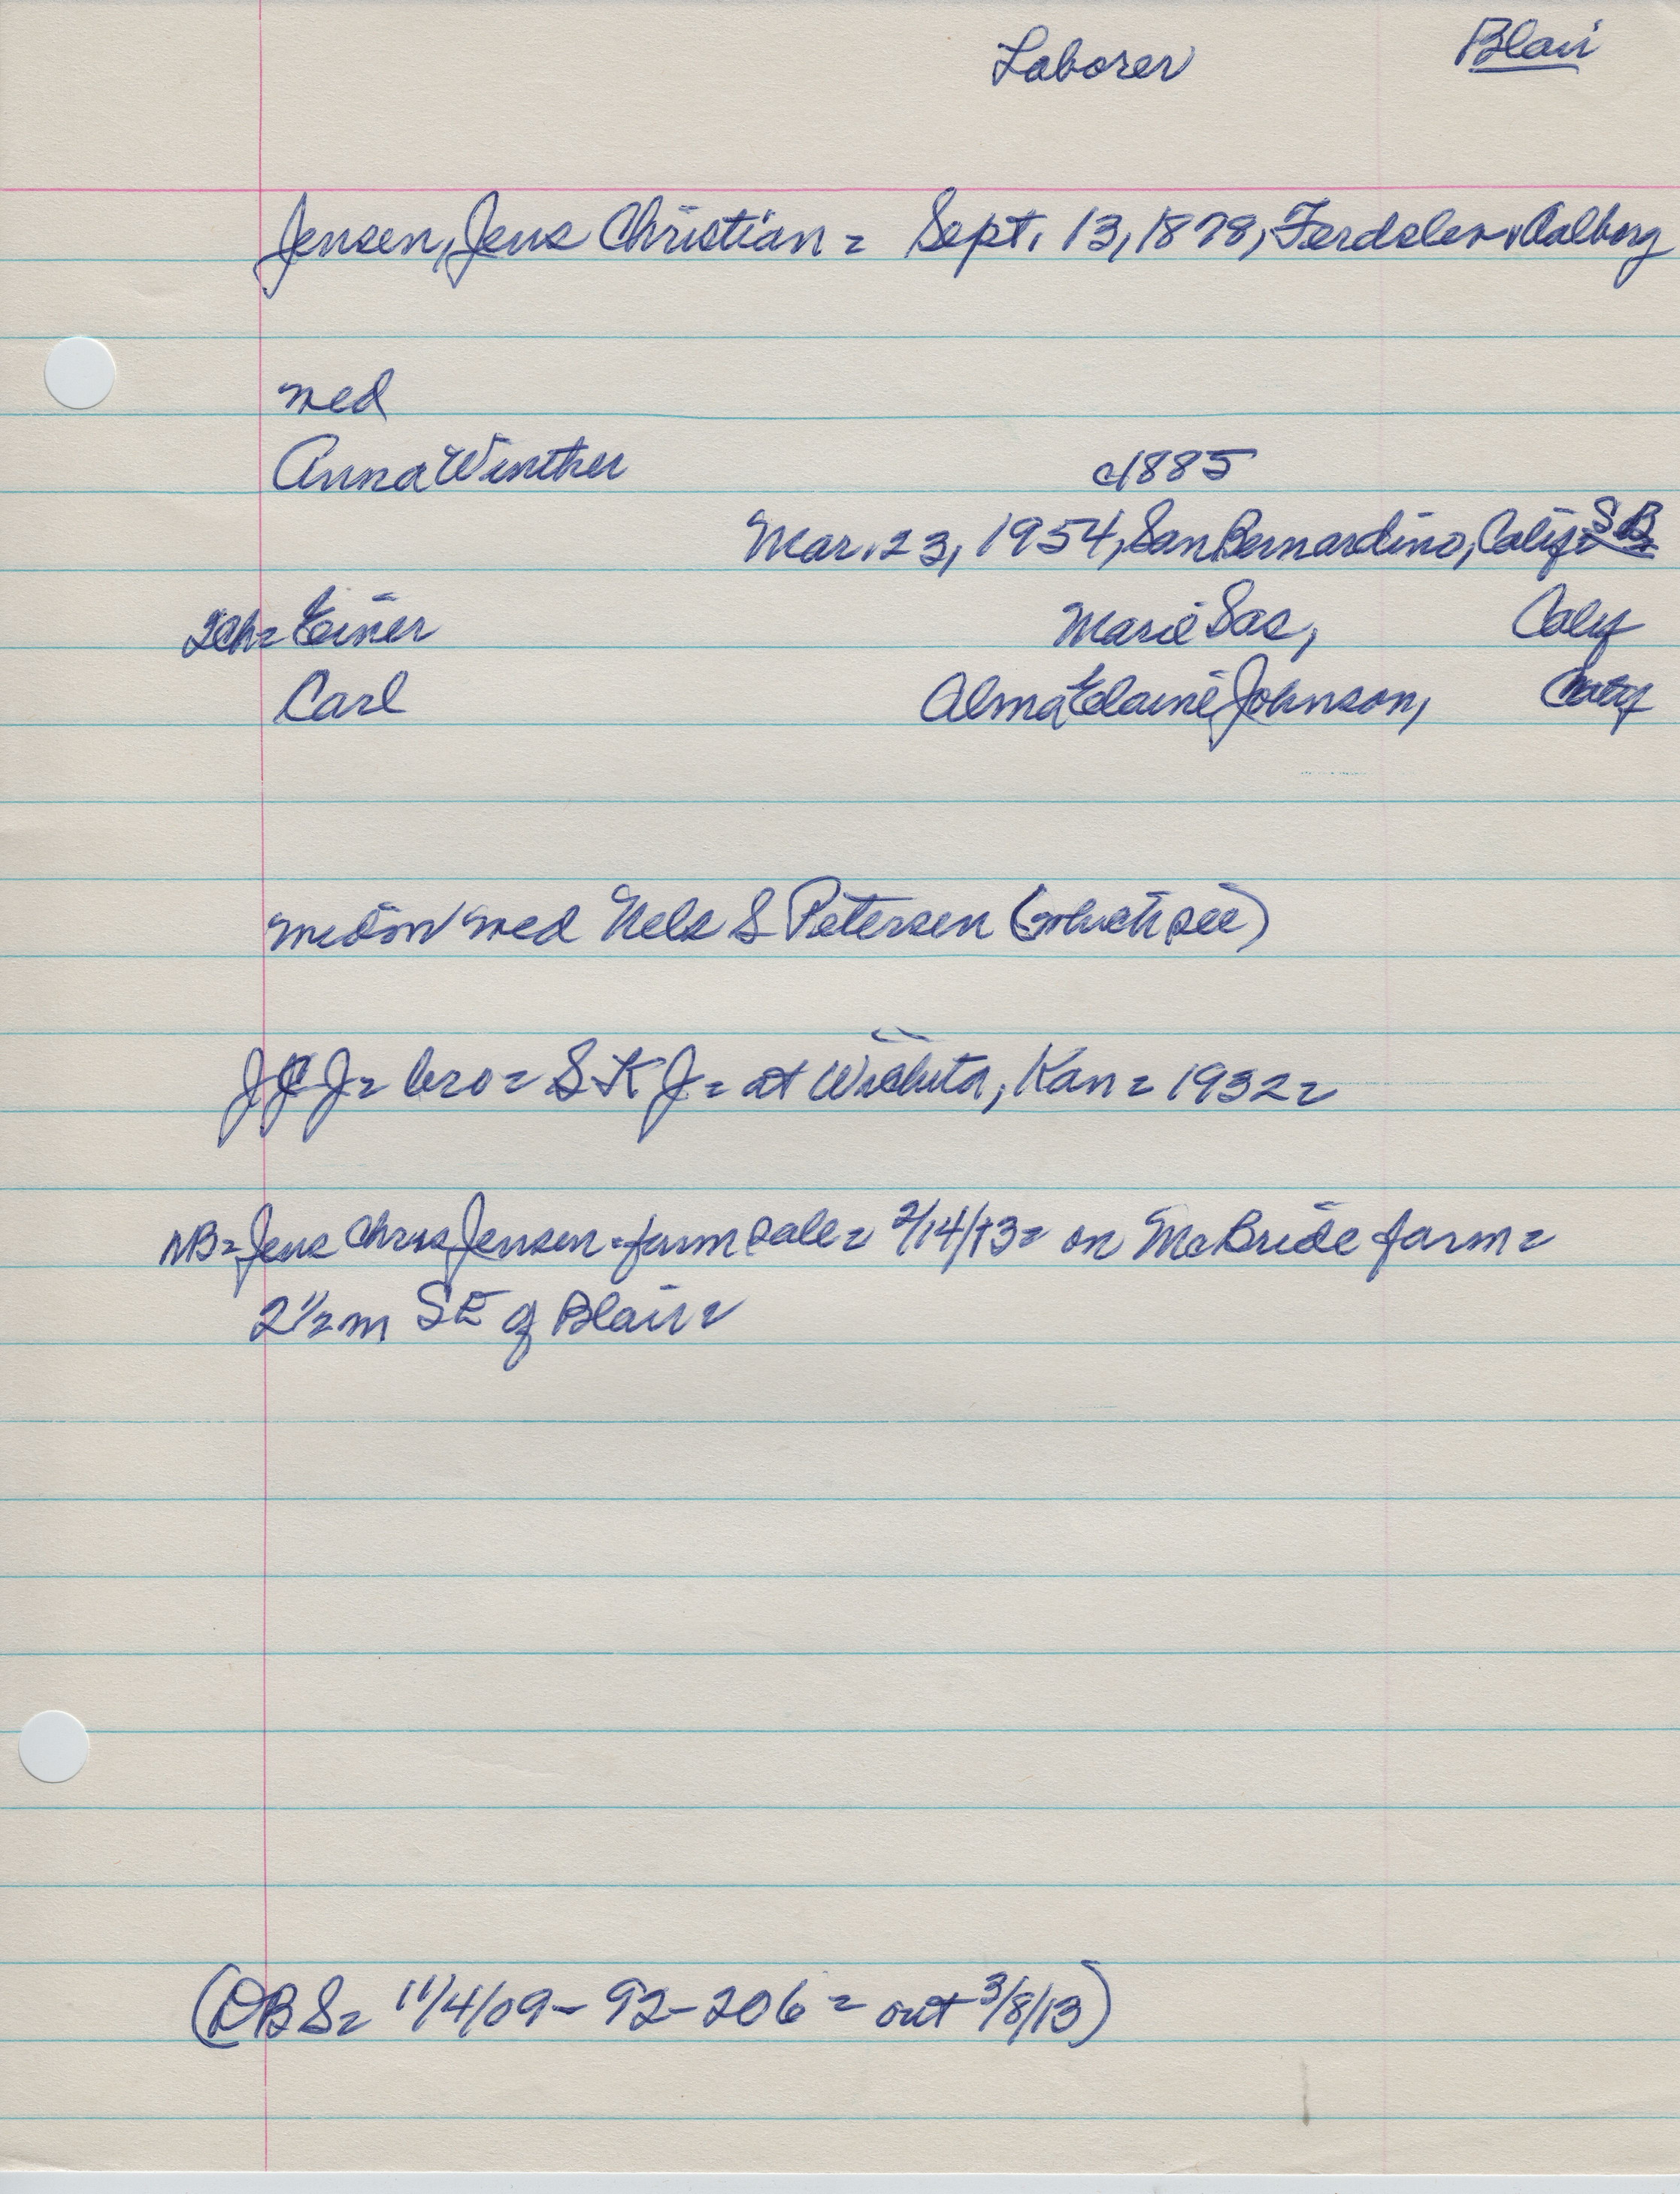 Laborer Blair
Jensen, Jens Christian = Sept. 13, 1878, Ferdslev v Aalborg
med
Anna Winther c1885
Mar. 23, 1954, San Bernardino, Calif = SB
2ch = Einer Marie Sas, Calif
Carl Alma Elaine Johnson, Calif
med Nels S Petersen (which see)
JCJ = bro = SKJ = at Wichita, Kan = 1932 =
NB = Jens Chris Jensen = farm sale = 2/14/13 = on McBride farm =
2 1/2 m SE of Blair =
(DBS = 11/4/09 - 92-206 = out 3/8/13)